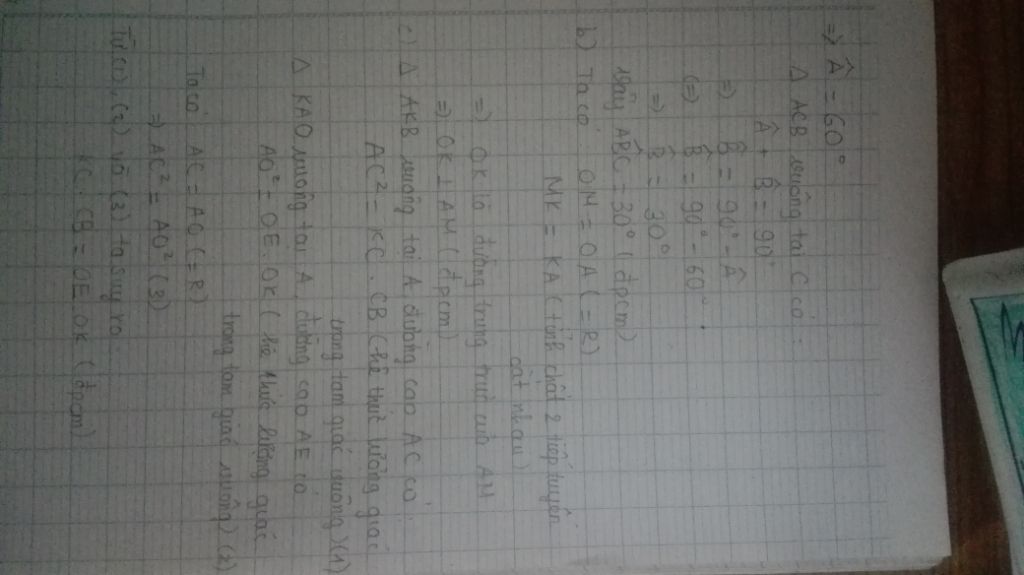 => Â = 60°
Δ ACB vuông tại C có :
Â + B̂ = 90°
=> B̂ = 90° - Â
(=) B̂ = 90° - 60°
=> B̂ = 30°
Vậy AB̂C = 30° (đpcm)
b) Ta có : OM = OA (= R)
MK = KA (tính chất 2 tiếp tuyến
cắt nhau)
=> OK là đường trung trực của AM
=> OK ⊥ AM (đpcm)
c) Δ AKB vuông tại A, đường cao AC có :
AC² = KC . CB (hệ thức lượng giác
trong tam giác vuông) (1)
Δ KAO vuông tại A, đường cao AE có
AO² = OE . OK (hệ thức lượng giác
trong tam giác vuông) (2)
Ta có : AC = AO (= R)
=> AC² = AO² (3)
Từ (1), (2) và (3) ta suy ra :
KC . CB = OE . OK (đpcm)